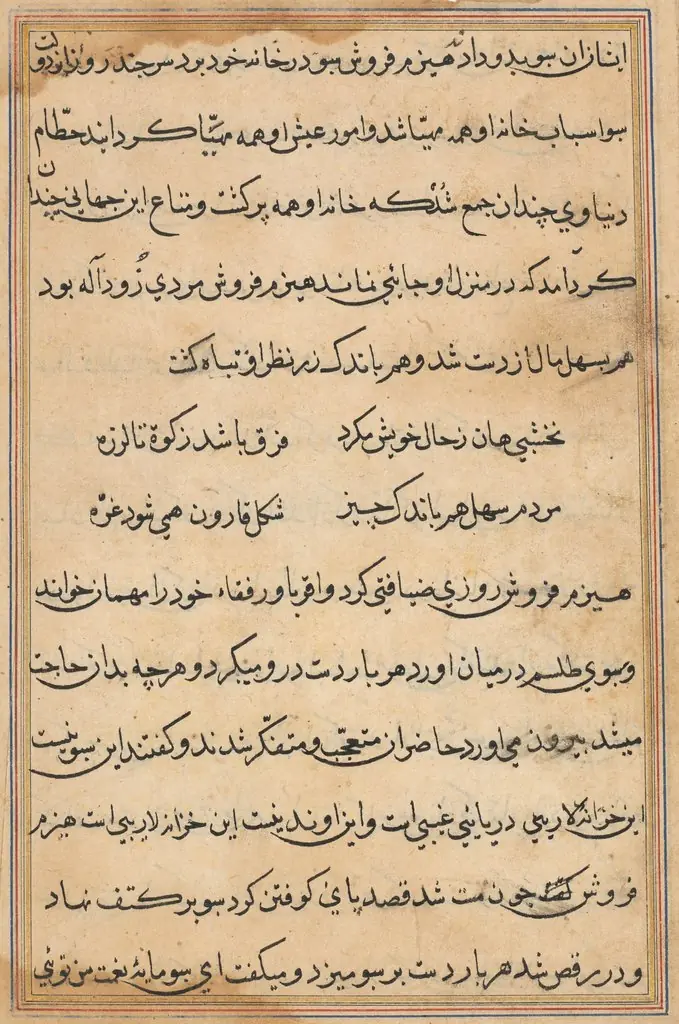 ایشان آن سبو بدو دادند هیزم فروش سبو در خانه خود برد سر چند روز از دولت
سبو اسباب خانه او همه مهیّا شد و امور عیش او همه مهیّا کردانید حطّام
دنیاوی چندان جمع شُد که خانه او همه پر کشت و متاع این جهانی چندان
کرد آمد که در منزل او جائی نماند هیزم فروش مردی زُود آله بود
هم بسهل مال از دست شد و هم باندک زر نظر او تباه کشت
نخشبی هان ز حال خویش مکرد فرق باشد ز کوة تا لرزه
مردم سهل هم باندک چیز شکل قارون همی شود غرّه
هیزم فروش روزی ضیافتی کرد و اقربا و رفقاء خود را مهمان خواند
و سبوی طلسم در میان اورد هر بار دست درو میکرد و هرچه بدان حاجت
میشد بیرون می اورد حاضران متعجّب و متفکّر شدند و کفتند این سبو نیست
این خزانه لاریبی دریائی غیبی است و این اوند نیست این خزانه لاریبی است هیزم
فروش کفت چون مست شد قصد پای کوفتن کرد سبو بر کتف نهاد
و در رقص شد هر بار دست بر سبو میزد و میکفت ای سبو مایهٔ نعمت من توئی